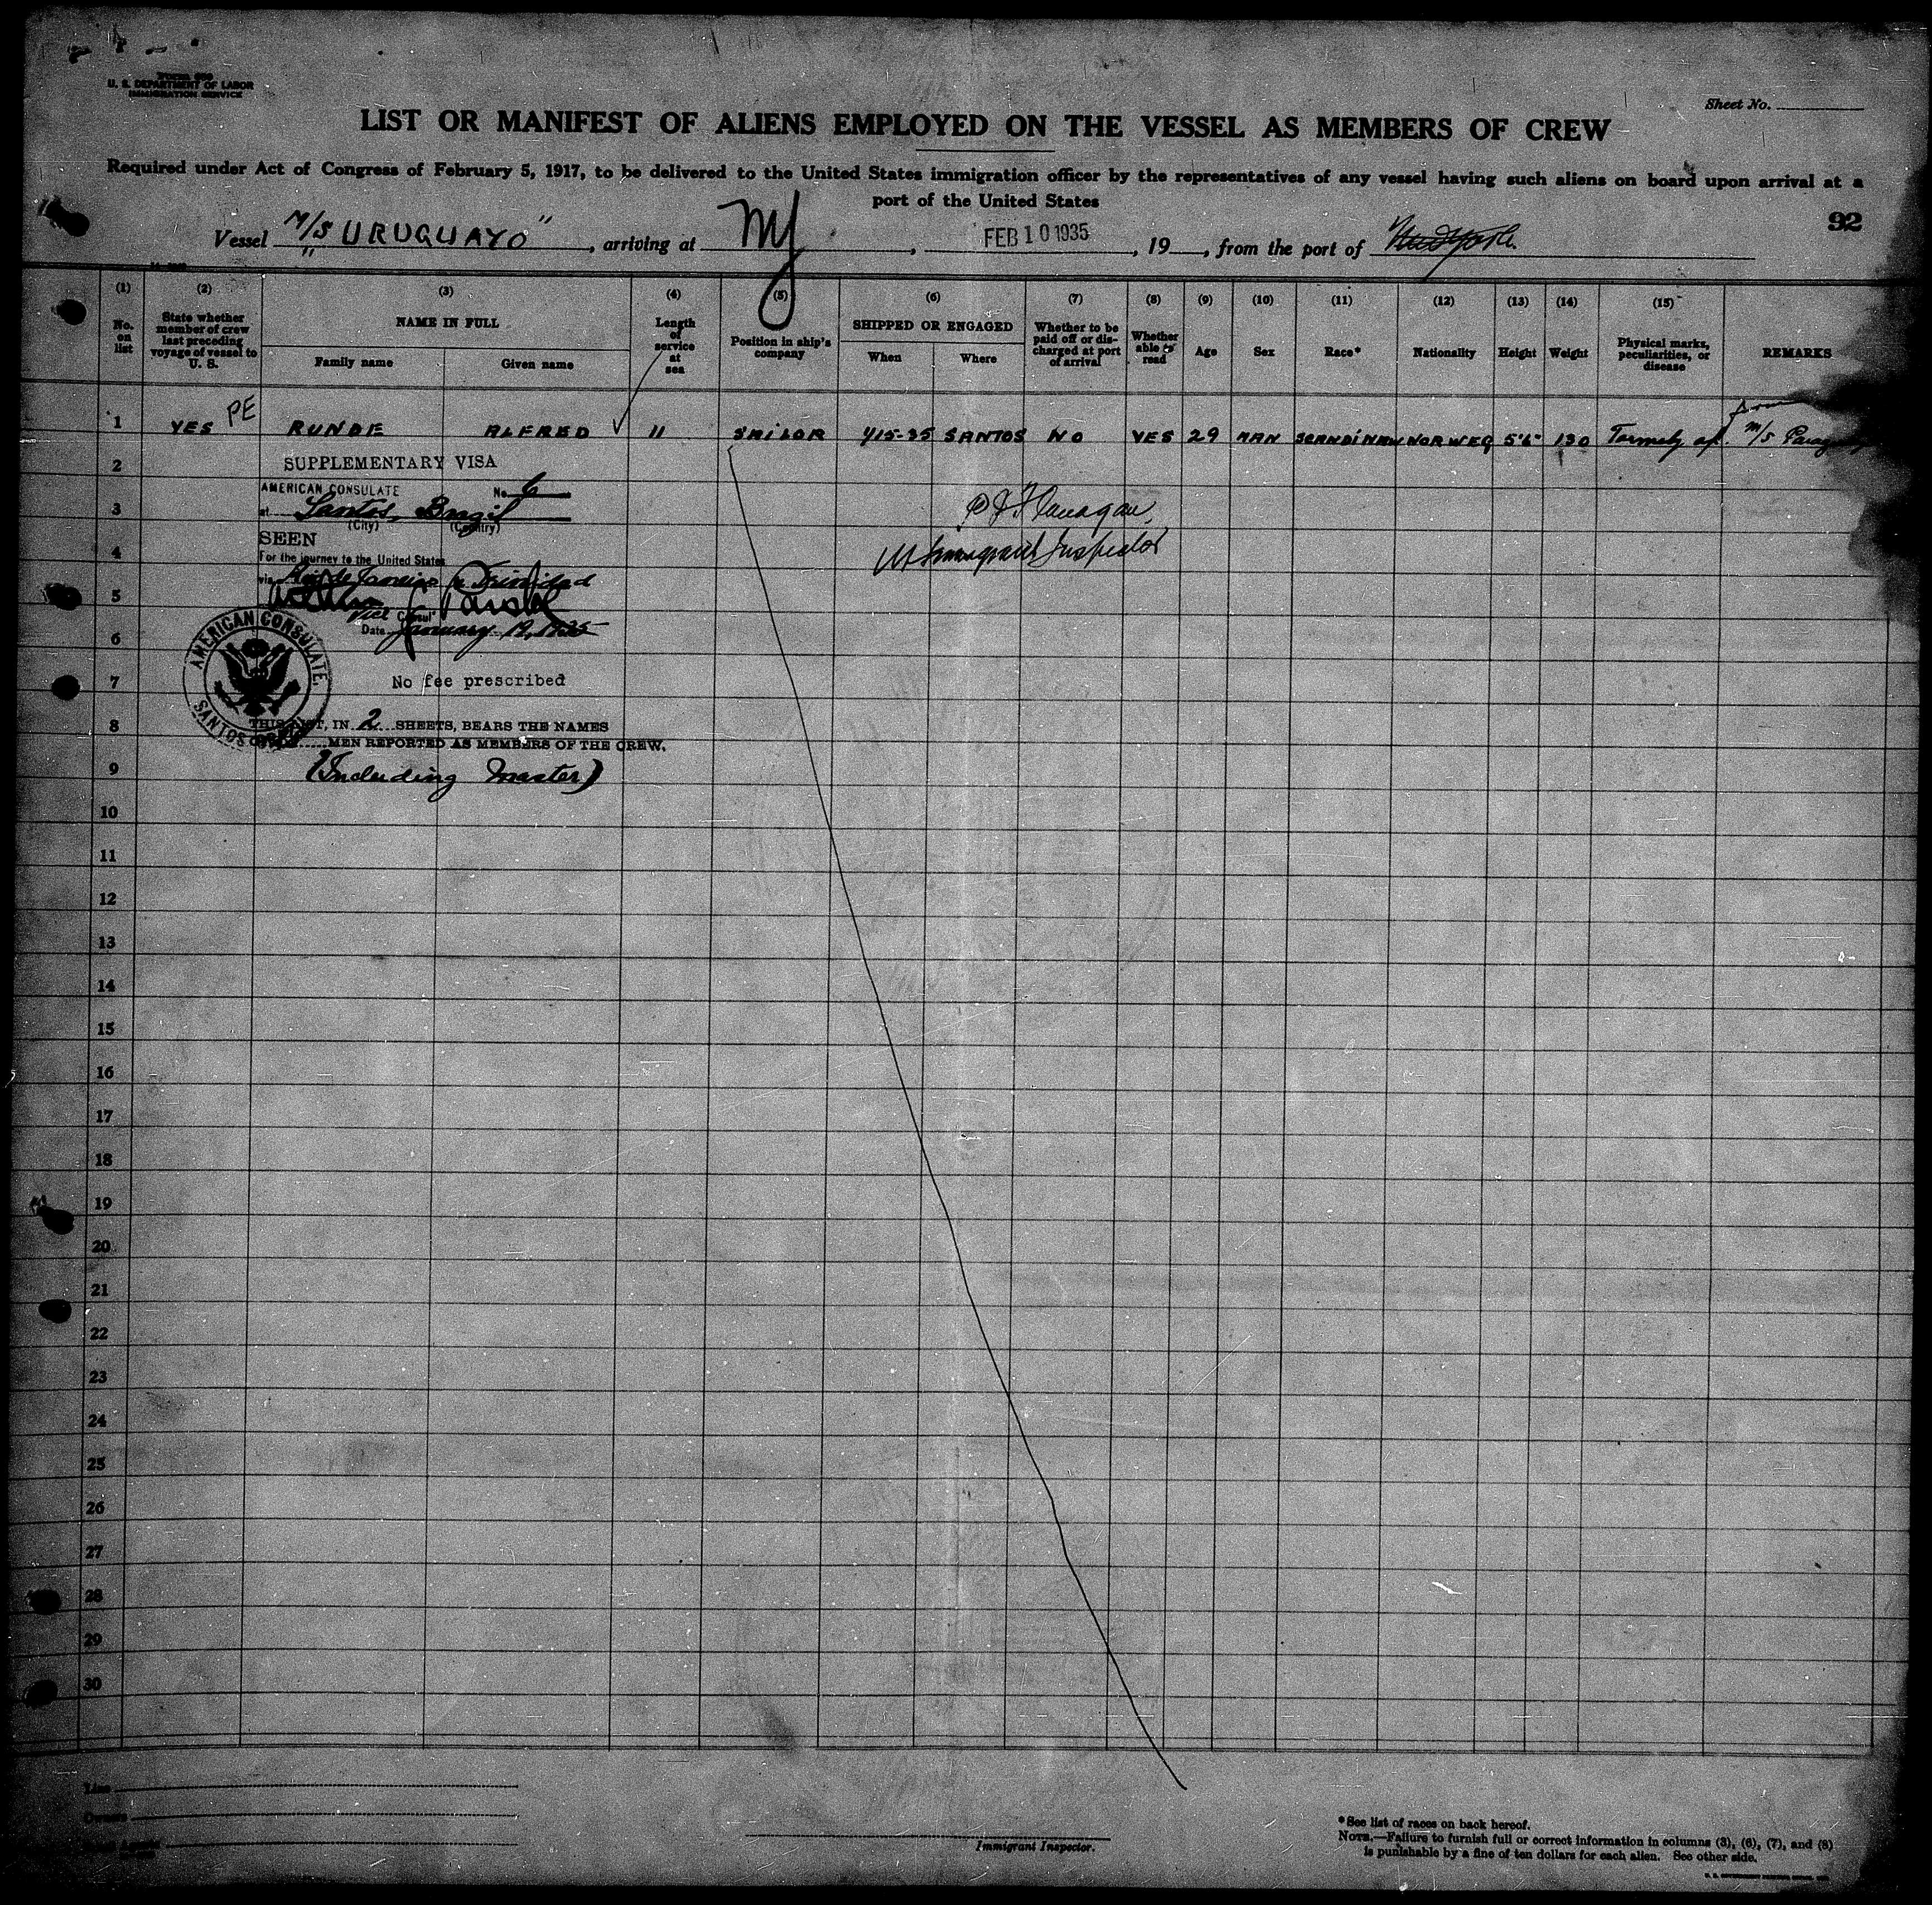 U. S. DEPARTMENT OF LABOR
IMMIGRATION SERVICE
Sheet No.
LIST OR MANIFEST OF ALIENS EMPLOYED ON THE VESSEL AS MEMBERS OF CREW
Required under Act of Congress of February 5, 1917, to be delivered to the United States immigration officer by the representatives of any vessel having such aliens on board upon arrival at a
port of the United States
92
Vessel M/S "URUGUAYO", arriving at NY, FEB 10 1935, 19, from the port of
(1) (2) (3) (4) (5) (6) (7) (8) (9) (10) (11) (12) (13) (14) (15)
No. on list
State whether member of crew last preceding voyage of vessel to U. S.
NAME IN FULL
Family name
Given name
Length of service at sea
Position in ship's company
SHIPPED OR ENGAGED
When
Where
Whether to be paid off or discharged at port of arrival
Whether able to read
Age
Sex
Race*
Nationality
Height
Weight
Physical marks, peculiarities, or disease
REMARKS
1 YES PE RUNDE ALFRED 11 SAILOR 1/15-35 SANTOS NO YES 29 MAN SCANDINAV NORWEG 5'6" 130 from M/S
2 SUPPLEMENTARY VISA
AMERICAN CONSULATE No. 6
3 at Santos, Brazil
(City) (Country)
P J Flanagan
SEEN
4 For the journey to the United States
Immigrant Inspector
via Rio de Janeiro Trinidad
5 Vice Consul
Date January 19, 1935
6
AMERICAN CONSULATE
SANTOS
7 No fee prescribed
8 THIS LIST, IN 2 SHEETS, BEARS THE NAMES
MEN REPORTED AS MEMBERS OF THE CREW.
9 (Including Master)
10
11
12
13
14
15
16
17
18
19
20
21
22
23
24
25
26
27
28
29
30
Line
Owners
Immigrant Inspector.
*See list of races on back hereof.
NOTE.—Failure to furnish full or correct information in columns (3), (6), (7), and (8)
is punishable by a fine of ten dollars for each alien. See other side.